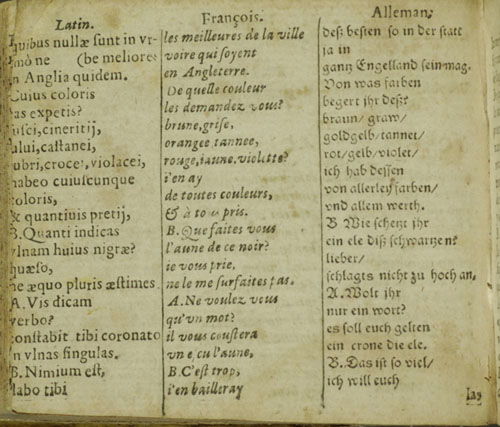 Latin.
quibus nullæ sunt in vr-
ne (be meliores
in Anglia quidem.
Cuius coloris
as expetis?
fusci, cineritij,
ului, castanei,
rubri, crocei, violacei,
habeo cuiuscunque
coloris,
& quantiuis pretij,
B. Quanti indicas
vlnam huius nigræ?
quæso,
ne æquo pluris æstimes
A. Vis dicam
verbo?
constabit tibi coronato
in vlnas singulas.
B. Nimium est,
dabo tibi
François.
les meilleures de la ville
voire qui soyent
en Angleterre.
De quelle couleur
les demandez vous?
brune, grise,
orangee tannee,
rouge, iaune, violette?
i'en ay
de toutes couleurs,
& à tous pris.
B. Que faites vous
l'aune de ce noir?
ie vous prie,
ne le me surfaites pas.
A. Ne voulez vous
qu'vn mot?
il vous coustera
vn escu l'aune,
B. C'est trop,
i'en bailleray
Alleman.
deß besten so in der statt
ja in
gantz Engelland sein mag.
Von was farben
begert jhr deß?
braun/ graw/
goldgelb/ tannet/
rot/ gelb/ violet/
ich hab dessen
von allerley farben/
vnd allem werth.
B Wie schetzt jhr
ein ele diß schwartzen?
lieber/
schlagts nicht zu hoch an.
A. Wolt jhr
nur ein wort?
es soll euch gelten
ein crone die ele.
B. Das ist so viel/
ich will euch